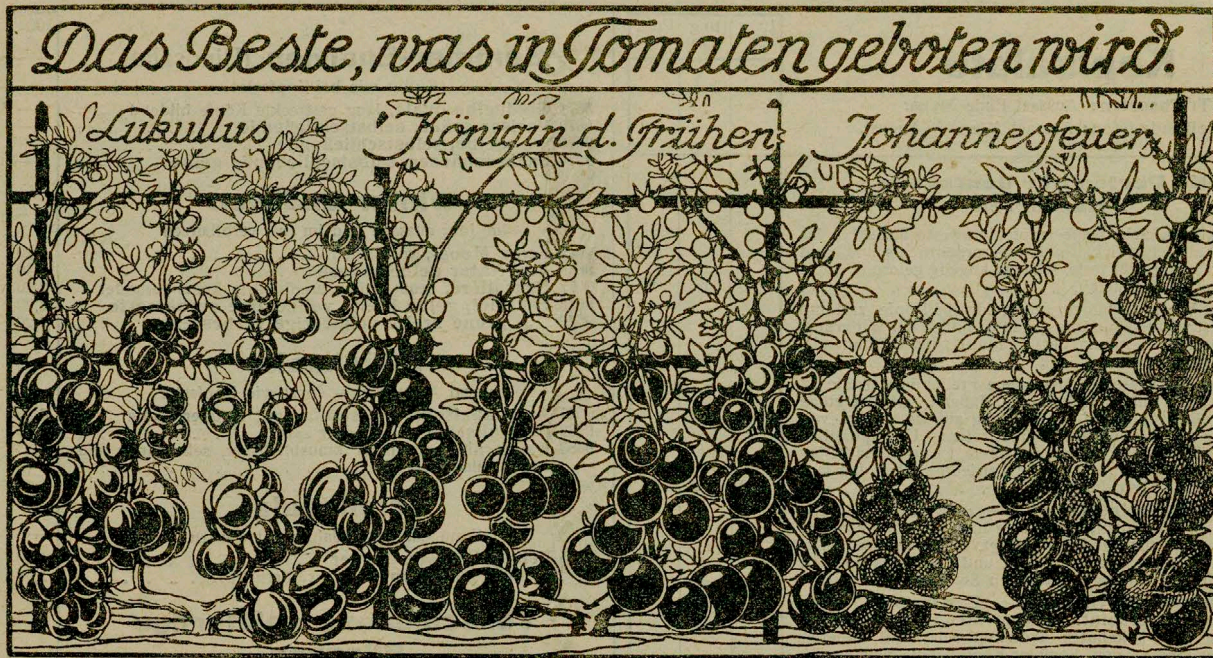 Das Beste, was in Tomaten geboten wird.
Lukullus Königin d. Frühen Johannesfeuer